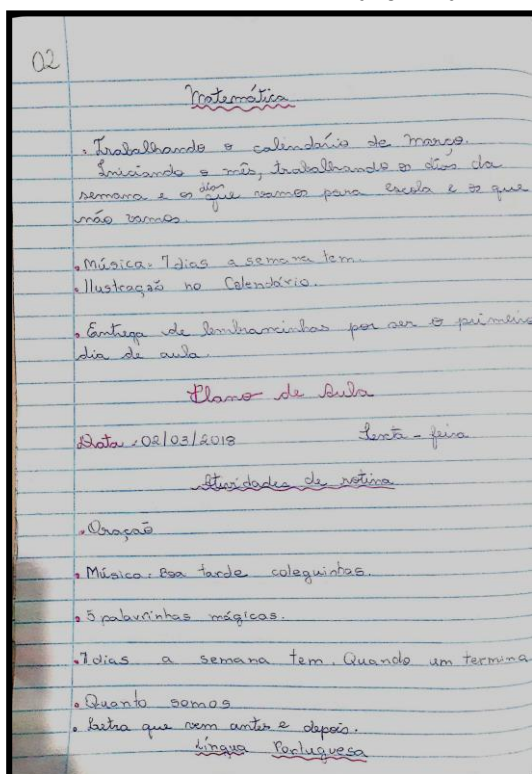 02
Matemática
. Trabalhando o calendário de março.
Iniciando o mês, trabalhando os dias da
semana e os dias que vamos para escola e os que
não vamos.
. Música: 7 dias a semana tem.
. Ilustração no Calendário.
. Entrega de lembrancinhas por ser o primeiro
dia de aula.
Plano de Aula
Data: 02/03/2018 Sexta-feira
Atividades de rotina
. Oração
. Música: Boa tarde coleguinhas.
. 5 palavrinhas mágicas.
. 7 dias a semana tem. Quando um termina
. Quanto somos
. Letra que vem antes e depois.
Língua Portuguesa